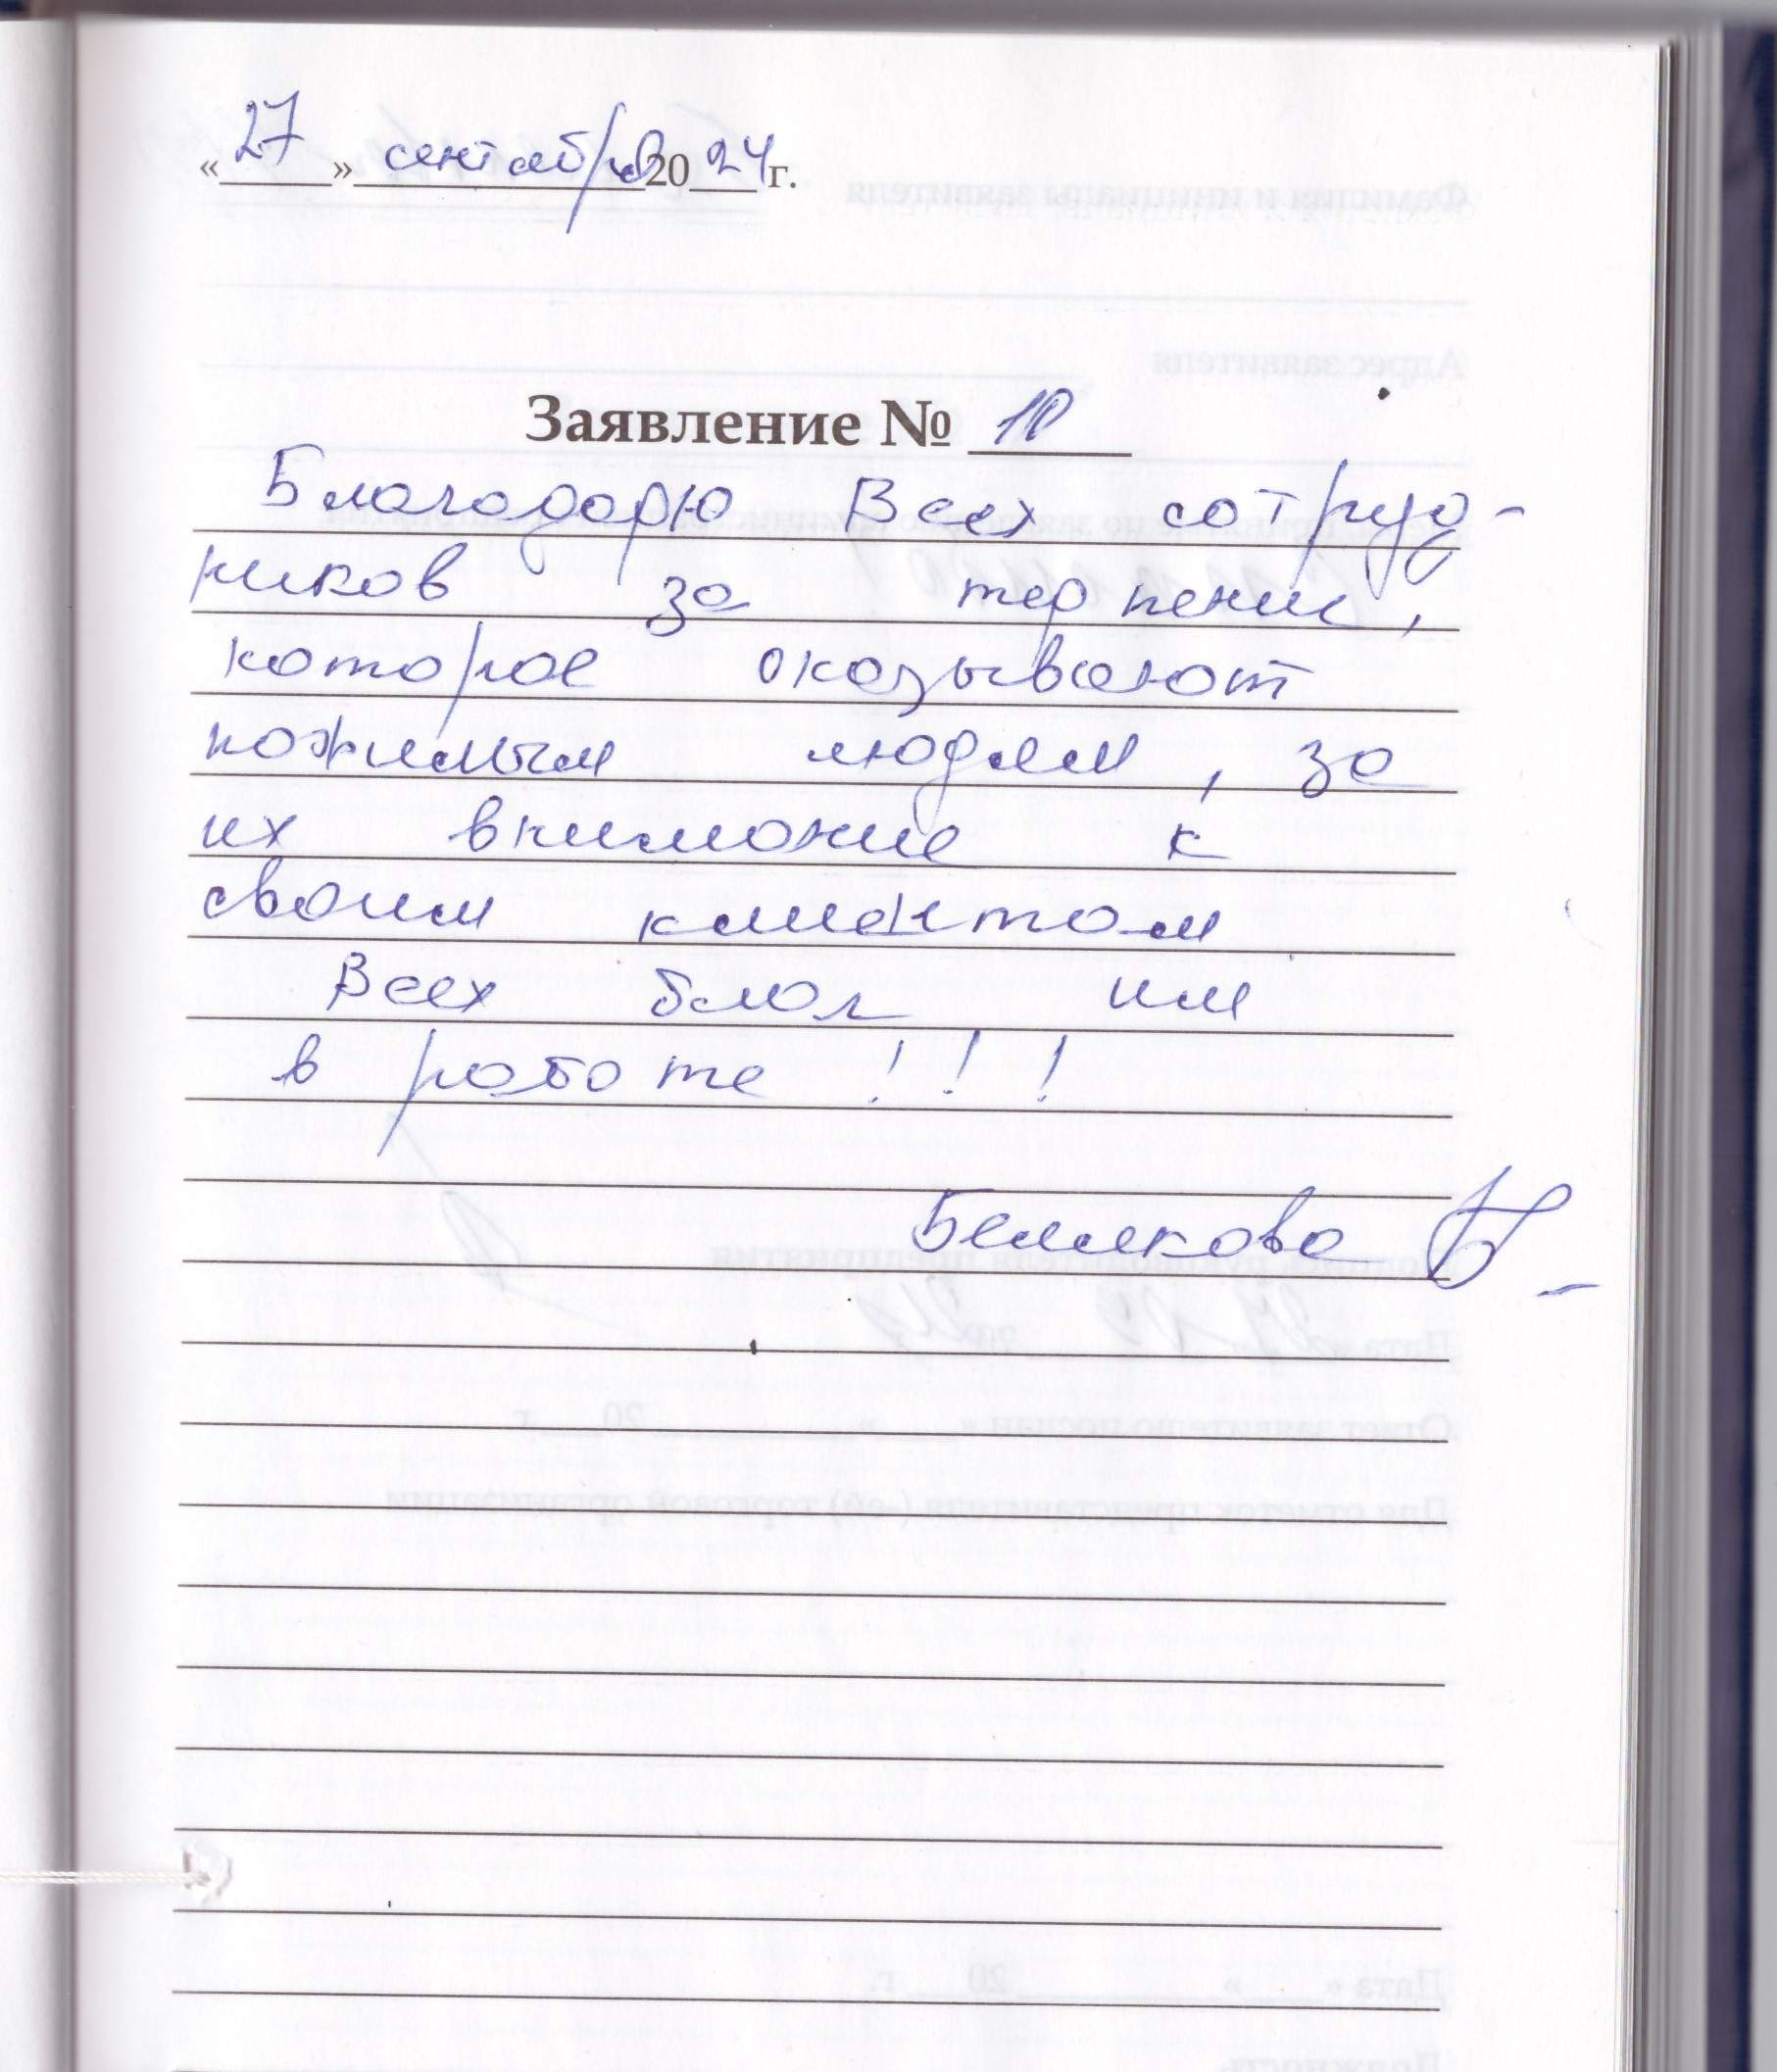 «27» сентября 2024 г.
Заявление № 10
Благодарю Всех сотруд-
ников за терпение,
которое оказывают
пожилым людям, за
их внимание к
своим клиентам
Всех благ им
в работе!!!
Белякова